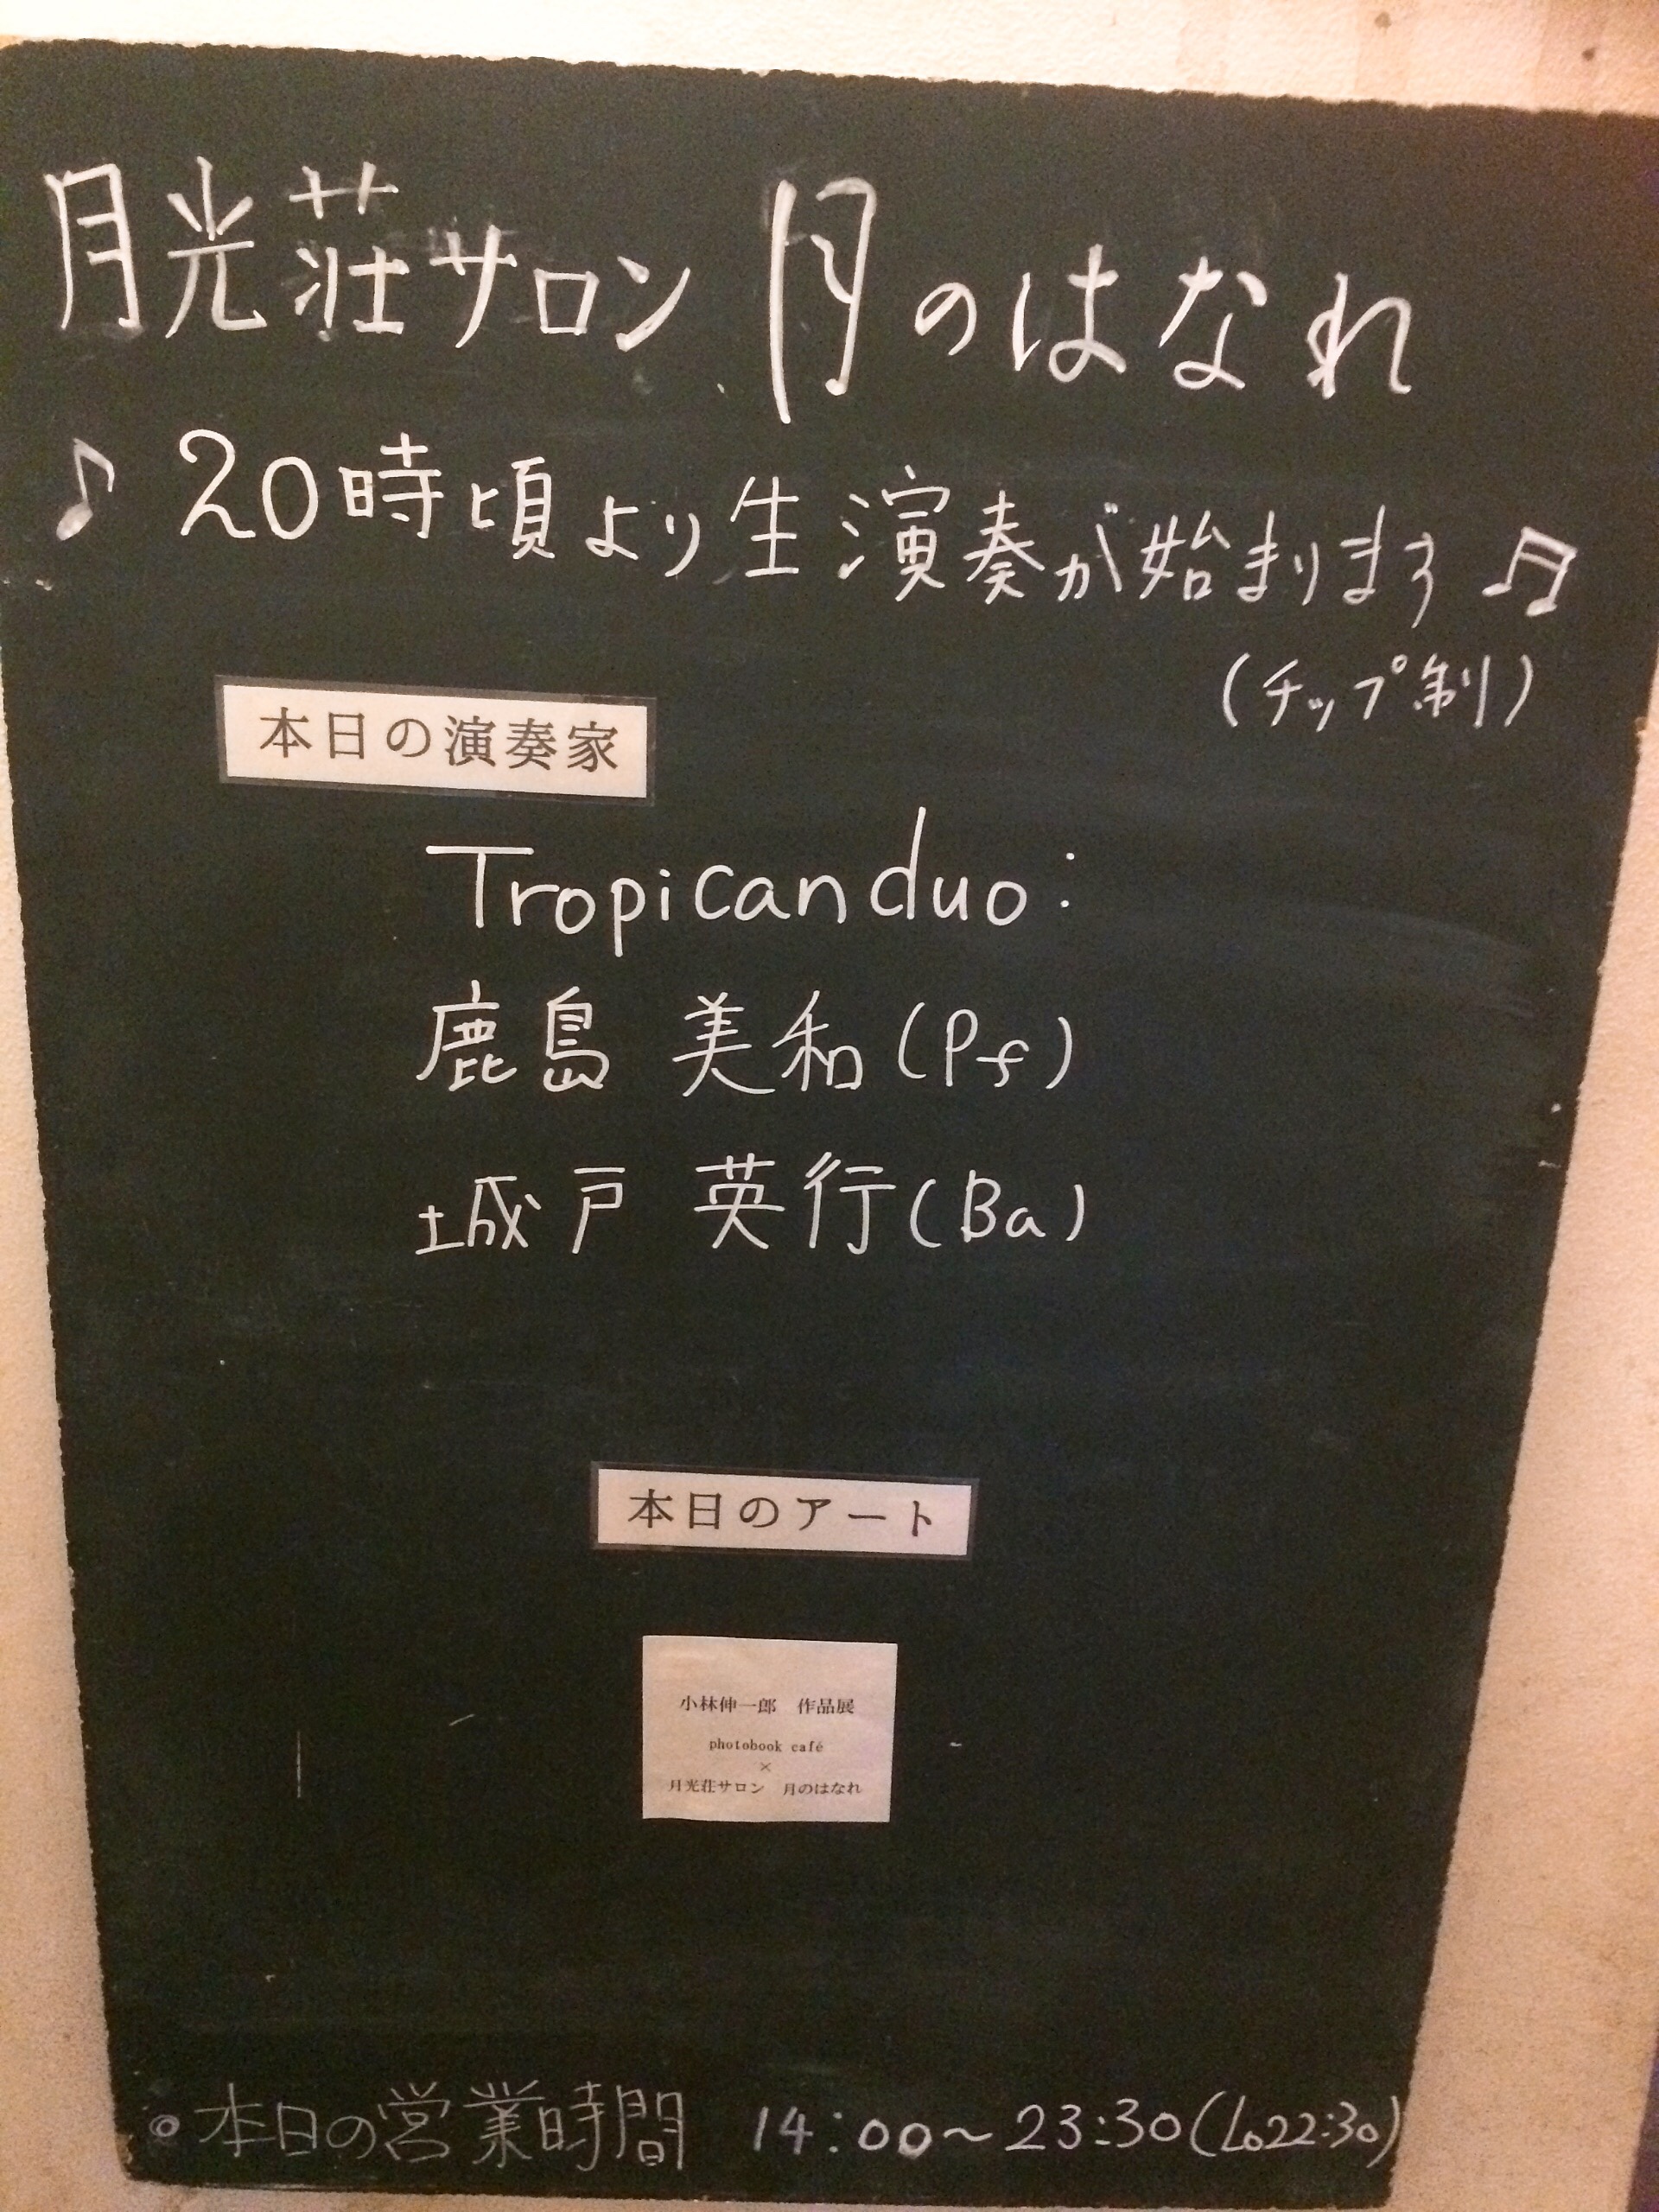 月光荘サロン 月のはなれ
♪ 20時頃より生演奏が始まります ♬
(チップ制)
本日の演奏家
Tropican duo:
鹿島 美和(Pf)
城戸 英行(Ba)
本日のアート
小林伸一郎 作品展
photobook café
×
月光荘サロン 月のはなれ
◎本日の営業時間 14:00~23:30(Lo22:30)